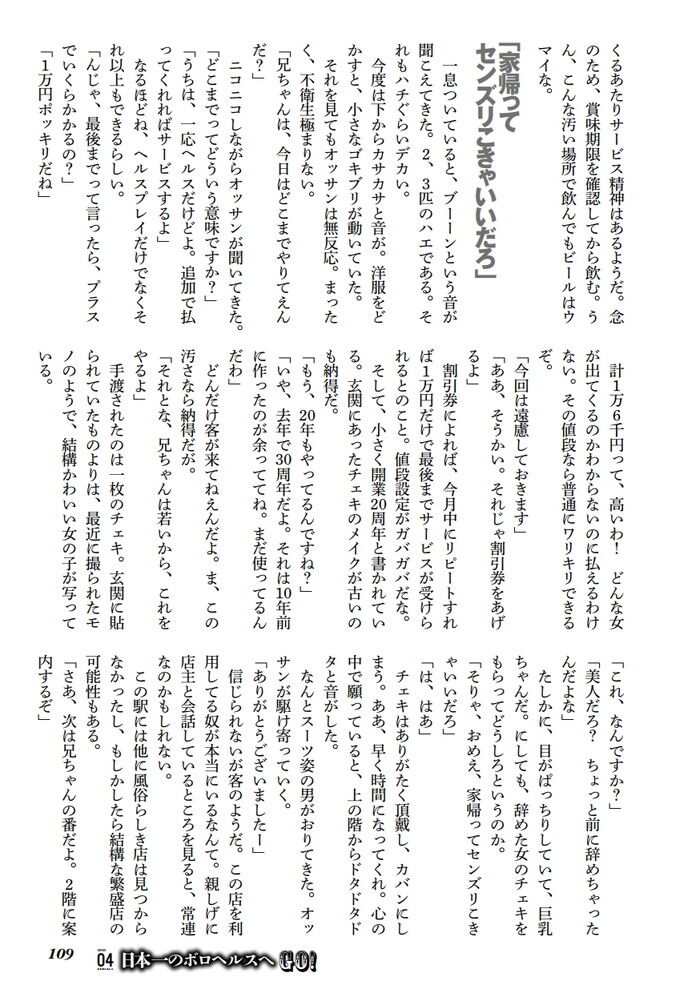 くるあたりサービス精神はあるようだ。念
のため、賞味期限を確認してから飲む。う
ん、こんな汚い場所で飲んでもビールはウ
マイな。
「家帰って
センズリこきゃいいだろ」
一息ついていると、ブーーンという音が
聞こえてきた。2、3匹のハエである。そ
れもハチぐらいデカい。
今度は下からカサカサと音が。洋服をど
かすと、小さなゴキブリが動いていた。
それを見てもオッサンは無反応。まった
く、不衛生極まりない。
「兄ちゃんは、今日はどこまでやりてえん
だ？」
ニコニコしながらオッサンが聞いてきた。
「どこまでってどういう意味ですか？」
「うちは、一応ヘルスだけどよ。追加で払
ってくれればサービスするよ」
なるほどね、ヘルスプレイだけでなくそ
れ以上もできるらしい。
「んじゃ、最後までって言ったら、プラス
でいくらかかるの？」
「1万円ポッキリだね」
計1万6千円って、高いわ！　どんな女
が出てくるのかわからないのに払えるわけ
ない。その値段なら普通にワリキリできる
ぞ。
「今回は遠慮しておきます」
「ああ、そうかい。それじゃ割引券をあげ
るよ」
割引券によれば、今月中にリピートすれ
ば1万円だけで最後までサービスが受けら
れるとのこと。値段設定がガバガバだな。
そして、小さく開業20周年と書かれてい
る。玄関にあったチェキのメイクが古いの
も納得だ。
「もう、20年もやってるんですね？」
「いや、去年で30周年だよ。それは10年前
に作ったのが余っててね。まだ使ってるん
だわ」
どんだけ客が来てねえんだよ。ま、この
汚さなら納得だが。
「それとな、兄ちゃんは若いから、これを
やるよ」
手渡されたのは一枚のチェキ。玄関に貼
られていたものよりは、最近に撮られたモ
ノのようで、結構かわいい女の子が写って
いる。
「これ、なんですか？」
「美人だろ？　ちょっと前に辞めちゃった
んだよな」
たしかに、目がぱっちりしていて、巨乳
ちゃんだ。にしても、辞めた女のチェキを
もらってどうしろというのか。
「そりゃ、おめえ、家帰ってセンズリこき
ゃいいだろ」
「は、はあ」
チェキはありがたく頂戴し、カバンにし
まう。ああ、早く時間になってくれ。心の
中で願っていると、上の階からドタドタド
タと音がした。
なんとスーツ姿の男がおりてきた。オッ
サンが駆け寄っていく。
「ありがとうございましたー」
信じられないが客のようだ。この店を利
用してる奴が本当にいるなんて。親しげに
店主と会話しているところを見ると、常連
なのかもしれない。
この駅には他に風俗らしき店は見つから
なかったし、もしかしたら結構な繁盛店の
可能性もある。
「さあ、次は兄ちゃんの番だよ。2階に案
内するぞ」
109
04
日本一のボロヘルスへGO!